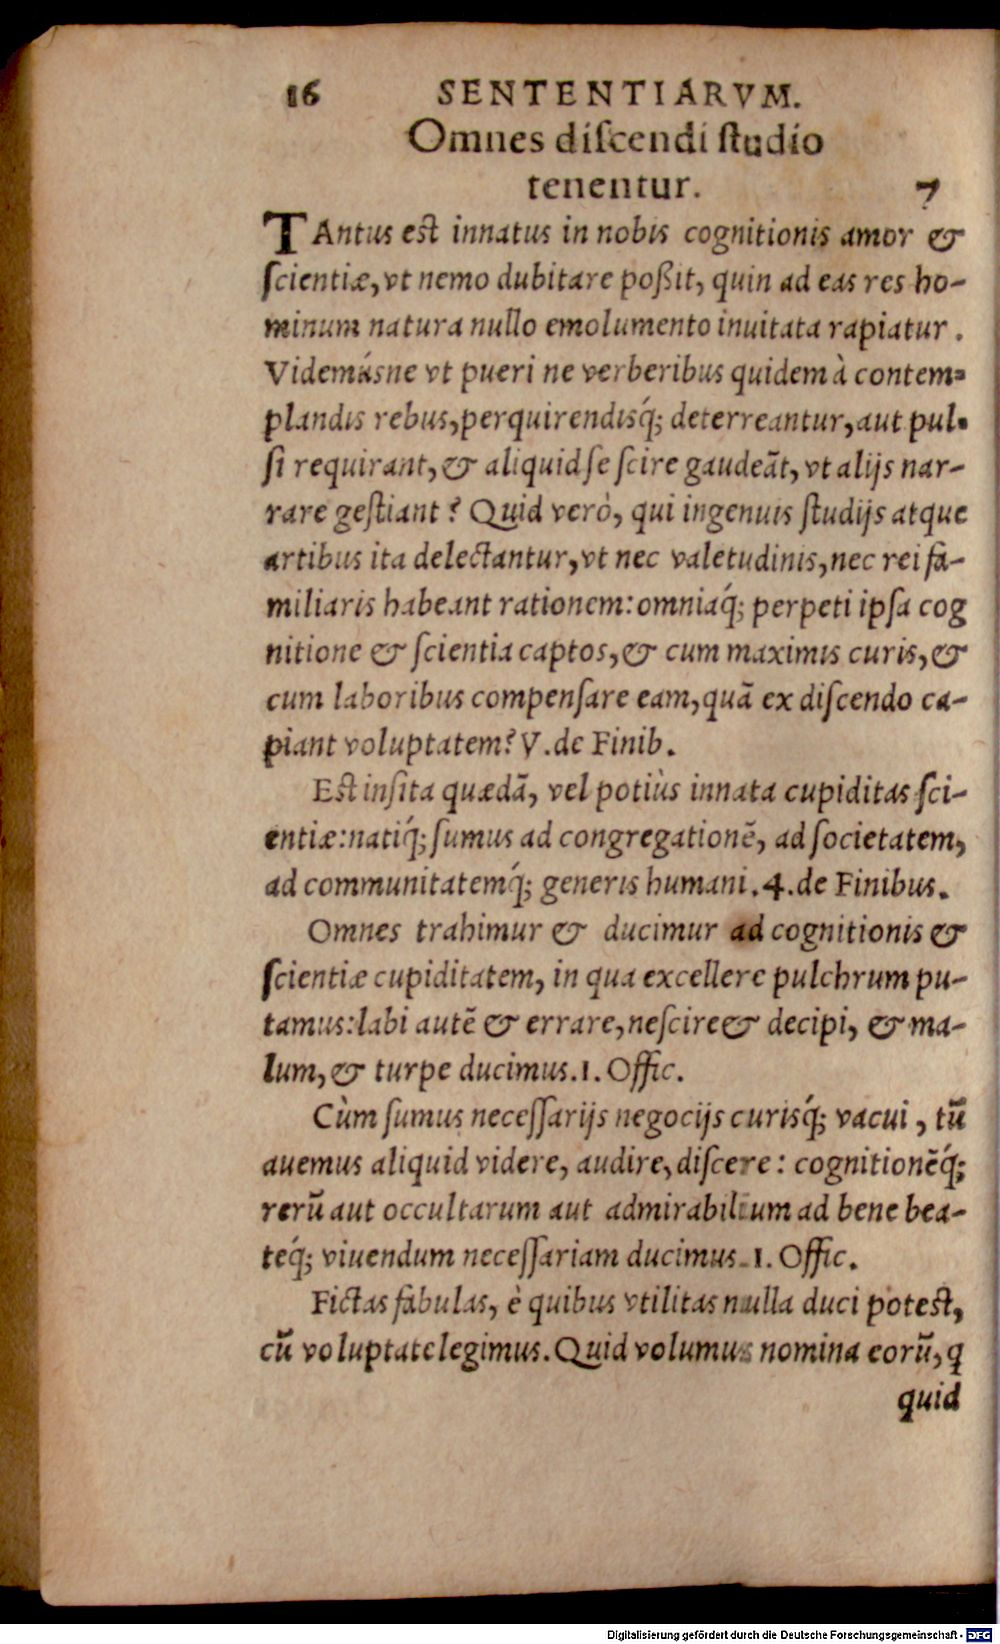 16 SENTENTIARVM.
Omnes diſcendi ſtudio
tenentur. 7
TAntus est innatus in nobis cognitionis amor &
ſcientiæ, vt nemo dubitare poßit, quin ad eas res ho-
minum natura nullo emolumento inuitata rapiatur.
Videmúsne vt pueri ne verberibus quidem à contem-
plandis rebus, perquirendisq́; deterreantur, aut pul-
ſi requirant, & aliquid ſe ſcire gaudeãt, vt alijs nar-
rare geſtiant? Quid verò, qui ingenuis ſtudijs atque
artibus ita delectantur, vt nec valetudinis, nec rei fa-
miliaris habeant rationem: omniaq́; perpeti ipſa cog
nitione & ſcientia captos, & cum maximis curis, &
cum laboribus compenſare eam, quã ex diſcendo ca-
piant voluptatem? V. de Finib.
Est inſita quædã, vel potiùs innata cupiditas ſci-
entiæ: natiq́; ſumus ad congregationẽ, ad ſocietatem,
ad communitatemq́; generis humani. 4. de Finibus.
Omnes trahimur & ducimur ad cognitionis &
ſcientiæ cupiditatem, in qua excellere pulchrum pu-
tamus: labi autẽ & errare, neſcire & decipi, & ma-
lum, & turpe ducimus. 1. Offic.
Cùm ſumus neceſſarijs negocijs curisq́; vacui, tũ
auemus aliquid videre, audire, diſcere: cognitionẽq́;
rerũ aut occultarum aut admirabilium ad bene bea-
teq́; viuendum neceſſariam ducimus. 1. Offic.
Fictas fabulas, è quibus vtilitas nulla duci potest,
cũ voluptate legimus. Quid volumus nomina eorũ, q
quid
Digitalisierung gefördert durch die Deutsche Forschungsgemeinschaft - DFG